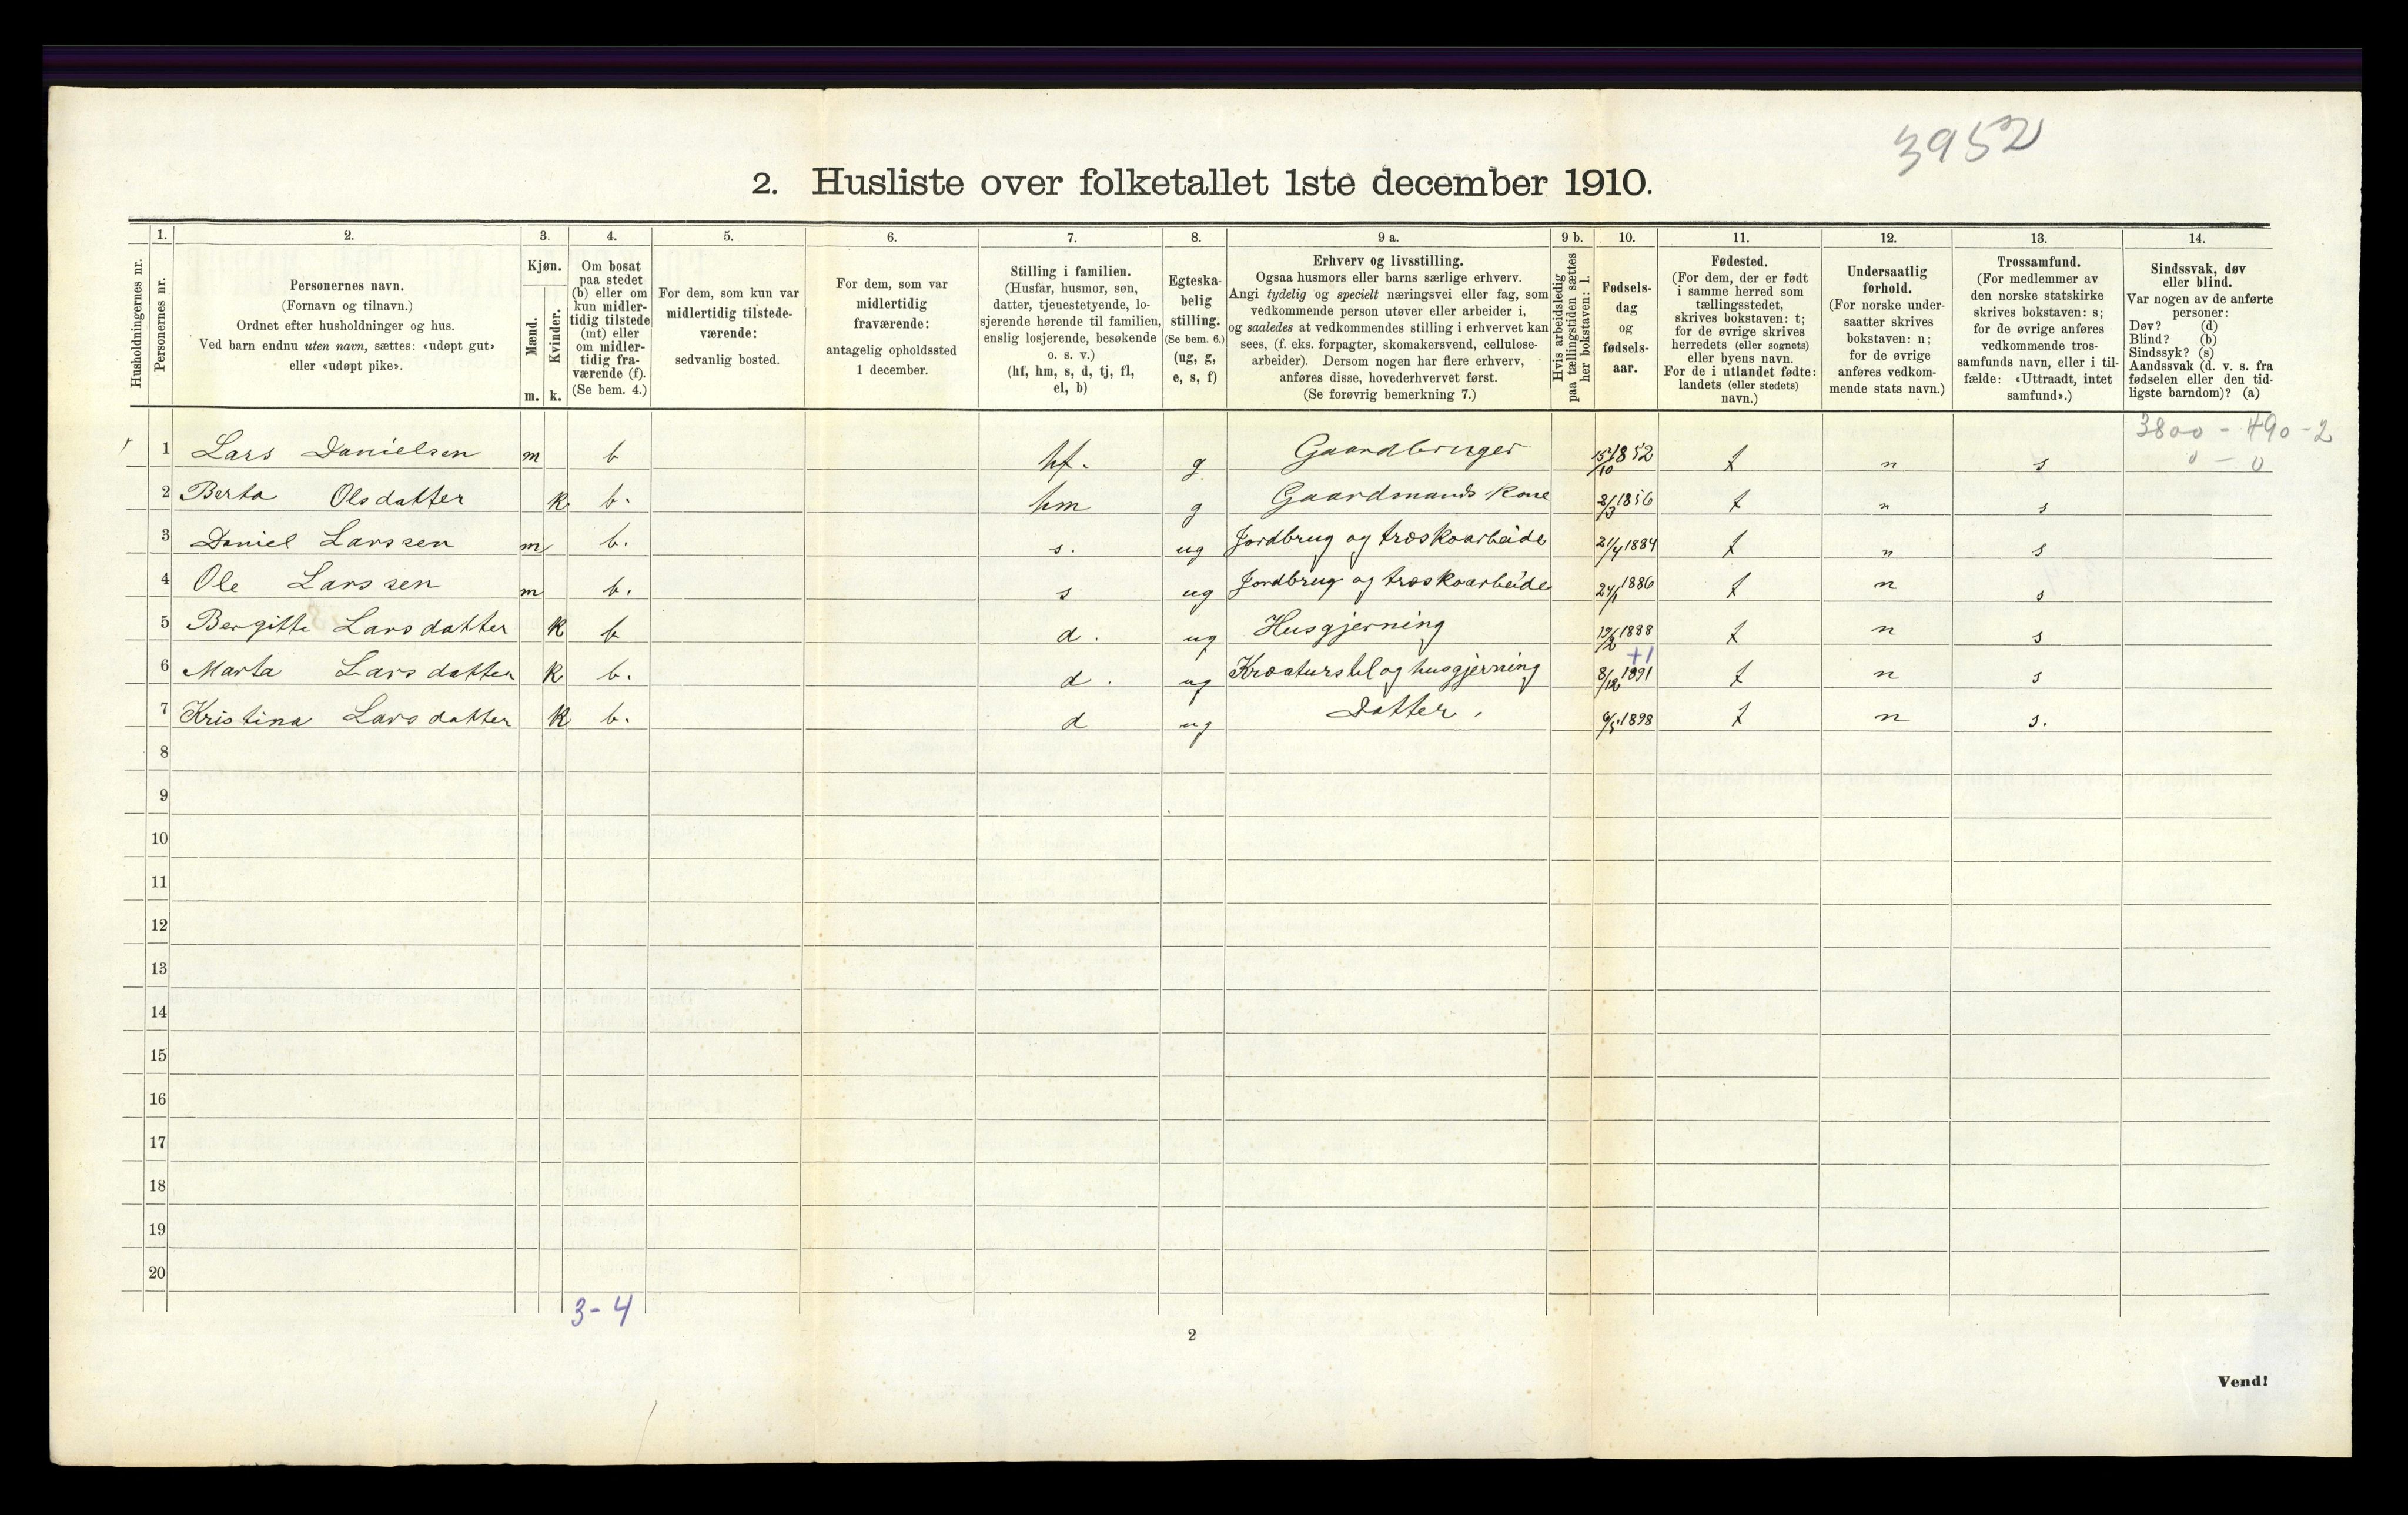 3952
2. Husliste over folketallet 1ste december 1910.
1. 2. 3. 4. 5. 6. 7. 8. 9 a. 9 b. 10. 11. 12. 13. 14.
Husholdningernes nr.
Personernes nr.
Personernes navn.
(Fornavn og tilnavn.)
Ordnet efter husholdninger og hus.
Ved barn endnu uten navn, sættes: «udøpt gut»
eller «udøpt pike».
Kjøn.
Mænd.
Kvinder.
m. k.
Om bosat
paa stedet
(b) eller om
kun midler-
tidig tilstede
(mt) eller
om midler-
tidig fra-
værende (f).
(Se bem. 4.)
For dem, som kun var
midlertidig tilstede-
værende:
sedvanlig bosted.
For dem, som var
midlertidig
fraværende:
antagelig opholdssted
1 december.
Stilling i familien.
(Husfar, husmor, søn,
datter, tjenestetyende, lo-
sjerende hørende til familien,
enslig losjerende, besøkende
o. s. v.)
(hf, hm, s, d, tj, fl,
el, b)
Egteska-
belig
stilling.
(Se bem. 6.)
(ug, g,
e, s, f)
Erhverv og livsstilling.
Ogsaa husmors eller barns særlige erhverv.
Angi tydelig og specielt næringsvei eller fag, som
vedkommende person utøver eller arbeider i,
og saaledes at vedkommendes stilling i erhvervet kan
sees, (f. eks. forpagter, skomakersvend, cellulose-
arbeider). Dersom nogen har flere erhverv,
anføres disse, hovederhvervet først.
(Se forøvrig bemerkning 7.)
Hvis arbeidsledig
paa tællingstiden sættes
her bokstaven: l.
Fødsels-
dag
og
fødsels-
aar.
Fødested.
(For dem, der er født
i samme herred som
tællingsstedet,
skrives bokstaven: t;
for de øvrige skrives
herredets (eller sognets)
eller byens navn.
For de i utlandet fødte:
landets (eller stedets)
navn.)
Undersaatlig
forhold.
(For norske under-
saatter skrives
bokstaven: n;
for de øvrige
anføres vedkom-
mende stats navn.)
Trossamfund.
(For medlemmer av
den norske statskirke
skrives bokstaven: s;
for de øvrige anføres
vedkommende tros-
samfunds navn, eller i til-
fælde: «Uttraadt, intet
samfund».)
Sindssvak, døv
eller blind.
Var nogen av de anførte
personer:
Døv? (d)
Blind? (b)
Sindssyk? (s)
Aandssvak (d. v. s. fra
fødselen eller den tid-
ligste barndom)? (a)
3800 - 490 - 2
0 - 0
1 Lars Danielsen m b hf. g Gaardbruger 15/10 1852 t n s
2 Berta Olsdatter k b. hm g Gaardmands kone 2/3 1856 t n s
3 Daniel Larssen m b. s. ug Jordbrug og træskoarbeide 21/4 1884 t n s
4 Ole Larssen m b. s ug Jordbrug og træskoarbeide 24/1 1886 t n s
5 Bergitte Larsdatter k b d. ug Husgjerning 19/2 1888 t n s
+1
6 Marta Larsdatter k b. d. ug Kræaturstel og husgjerning 8/12 1891 t n s
7 Kristina Larsdatter k b. d ug Datter. 6/5 1898 t n s.
8
9
10
11
12
13
14
15
16
17
18
19
20
3-4
2
Vend!